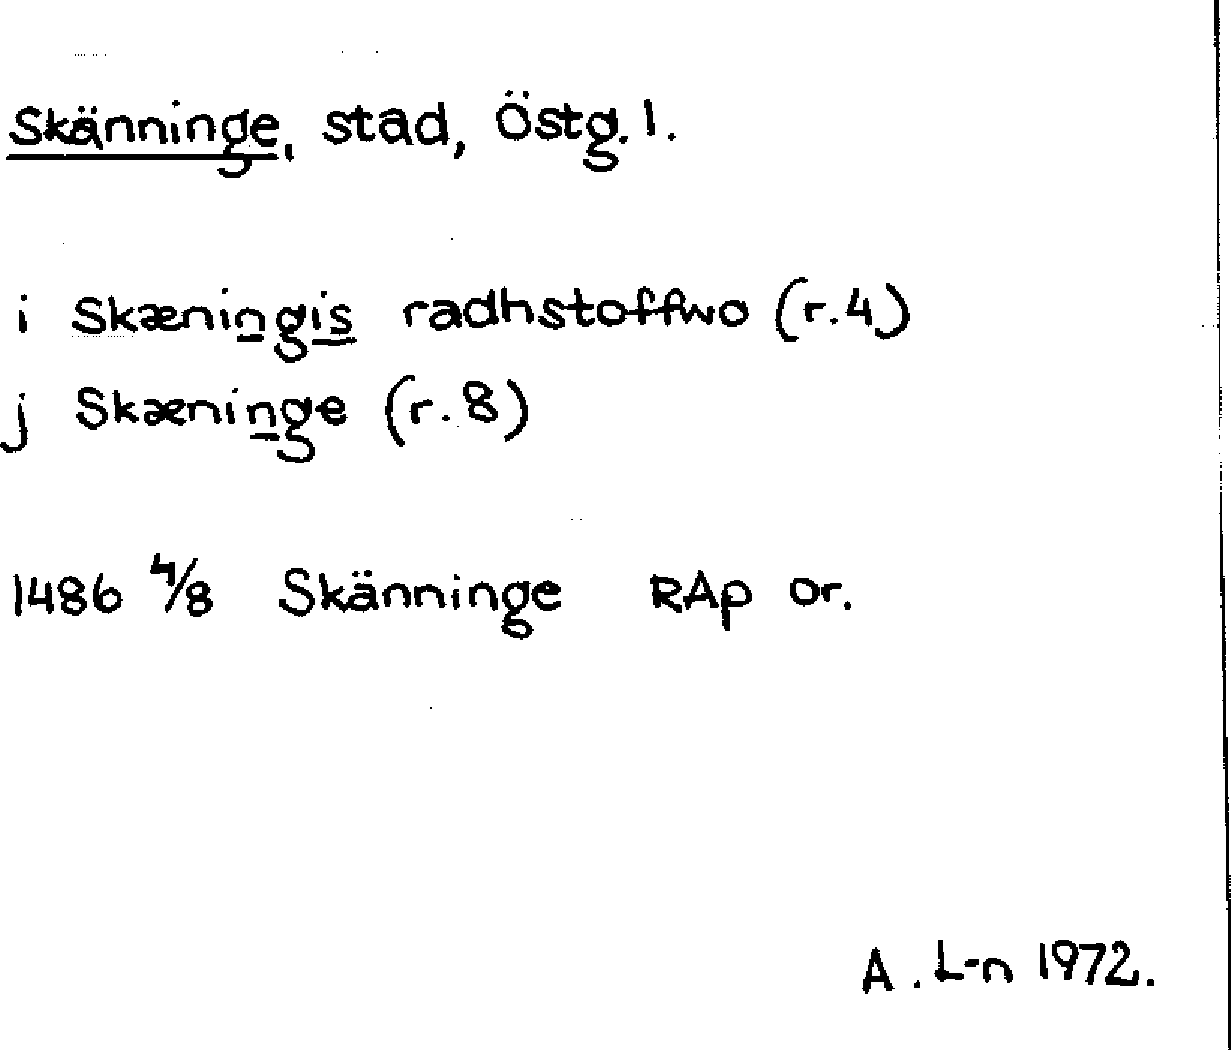 Skänninge, stad, Östg. l.
i Skæningis radhstoffwo (r.4)
j Skæninge (r.8)
1486 4/8 Skänninge RAp or.
A. L-n 1972.